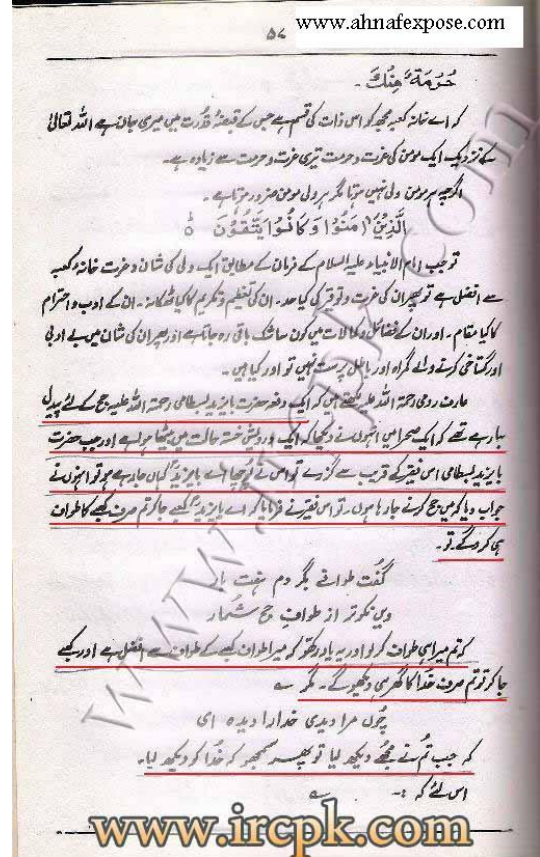 www.ahnafexpose.com
۵۷
حُرْمَةً مِنْكِ۔
کہ اے خانہ کعبہ مجھ کو اس ذات کی قسم ہے جس کے قبضۂ قدرت میں میری جان ہے اللہ تعالیٰ
کے نزدیک ایک مومن کی عزت و حرمت تیری عزت و حرمت سے زیادہ ہے۔
اگرچہ ہر مومن ولی نہیں ہوتا مگر ہر ولی مومن ضرور ہوتا ہے۔
اَلَّذِیْنَ اٰمَنُوْا وَ کَانُوْا یَتَّقُوْنَ ۵
تو جب امام الانبیاء علیہ السلام کے فرمان کے مطابق ایک ولی کی شان و عزت خانۂ کعبہ
سے افضل ہے تو پھر ان کی عزت و توقیر کی کیا حد۔ ان کی تعظیم و تکریم کا کیا ٹھکانہ۔ ان کے ادب و احترام
کا کیا مقام۔ اور ان کے فضائل و کمالات میں کون سا شک باقی رہ جاتا ہے اور پھر ان کی شان میں بے ادبی
اور گستاخی کرنے والے گمراہ اور باطل پرست نہیں تو اور کیا ہیں۔
عارف رومی رحمۃ اللہ علیہ لکھتے ہیں کہ ایک دفعہ حضرت بایزید بسطامی رحمۃ اللہ علیہ حج کے لئے پیدل
جا رہے تھے کہ ایک صحرا میں انہوں نے دیکھا کہ ایک درویش خستہ حالت میں بیٹھا ہوا ہے اور جب حضرت
بایزید بسطامی اس فقیر کے قریب سے گزرے تو اس نے پوچھا اے بایزید کہاں جا رہے ہو تو انہوں نے
جواب دیا کہ میں حج کرنے جا رہا ہوں۔ تو اس فقیر نے فرمایا کہ اے بایزید کعبے جا کر تم صرف کعبے کا طواف
ہی کرو گے۔ تو۔
گفت طوافے بگردم ہفت بار
دیں نکوتر از طوافِ حج شمار
کہ تم میرا ہی طواف کر لو اور یہ یاد رکھو کہ میرا طواف کعبے کے طواف سے افضل ہے اور کعبے
جا کر تو تم صرف خدا کا گھر ہی دیکھو گے۔ مگر ؎
چوں مرا دیدی خدا را دیدہ ای
کہ جب تم نے مجھے دیکھ لیا تو پھر سمجھو کہ خدا کو دیکھ لیا۔
اس لئے کہ :- ؎
www.ircpk.com